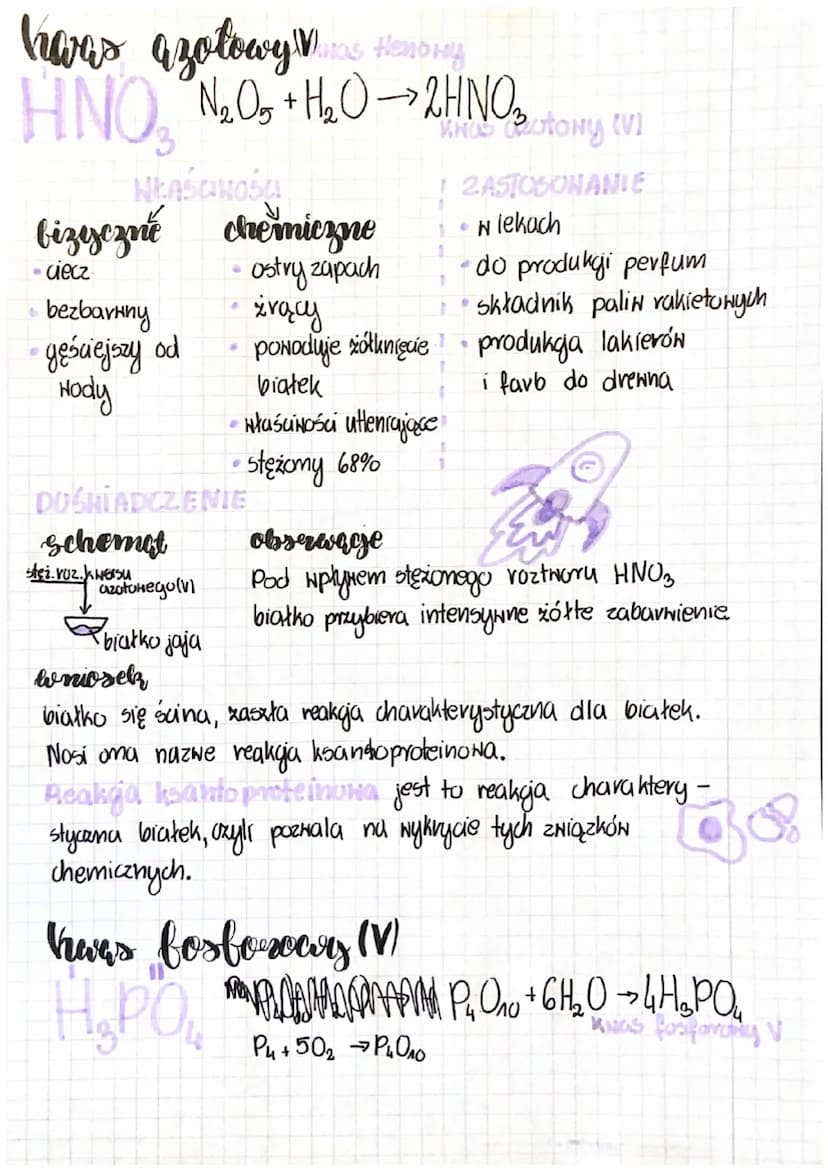 kwas azotowy (V) kwas tlenowy
HNO₃ N₂O₅ + H₂O → 2HNO₃
kwas azotowy (V)
WŁAŚCIWOŚCI
fizyczne
• ciecz
• bezbarwny
• gęściejszy od
wody
chemiczne
• ostry zapach
• żrący
• powoduje żółknięcie
białek
• właściwości utleniające
• stężony 68%
ZASTOSOWANIE
• w lekach
• do produkcji perfum
• składnik paliw rakietowych
• produkcja lakierów
i farb do drewna
DOŚWIADCZENIE
schemat
stęż. roz. kwasu
azotowego (V)
białko jaja
obserwacje
Pod wpływem stężonego roztworu HNO₃
białko przybiera intensywne żółte zabarwienie
wniosek
białko się ścina, zaszła reakcja charakterystyczna dla białek.
Nosi ona nazwe reakcja ksantoproteinowa.
Reakcja ksantoproteinowa jest to reakcja charaktery-
styczna białek, czyli pozwala na wykrycie tych związków
chemicznych.
kwas fosforowy (V)
I II
H₃PO₄ P₄O₁₀ + 6H₂O → 4H₃PO₄
kwas fosforowy V
P₄ + 5O₂ → P₄O₁₀